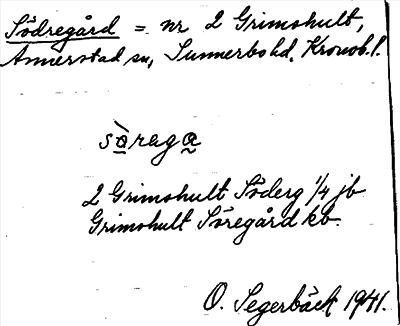 Södregård = nr 2 Grimshult,
Annerstad sn, Sunnerbo hd. Kronob.l.
sòraga
2 Grimshult Söderg 1/4 jb
Grimshult Söregård kb.
O. Segerbäck 1941.